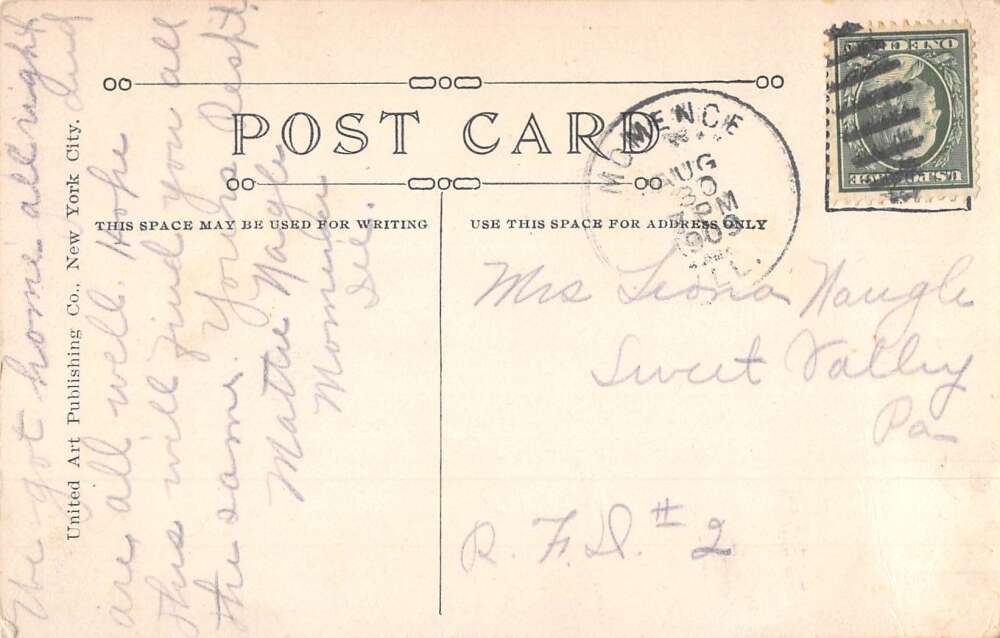 POST CARD
THIS SPACE MAY BE USED FOR WRITING
USE THIS SPACE FOR ADDRESS ONLY
United Art Publishing Co., New York City.
We got home allright and
are all well. Hope
this will find you all
the same. Yours Respt
Mattie Naugle
Momence
Ill.
MOMENCE
AUG
30
PM
1909
ILL.
U.S. POSTAGE
ONE CENT
Mrs Leona Naugle
Sweet Valley
Pa
R. F. D. # 2